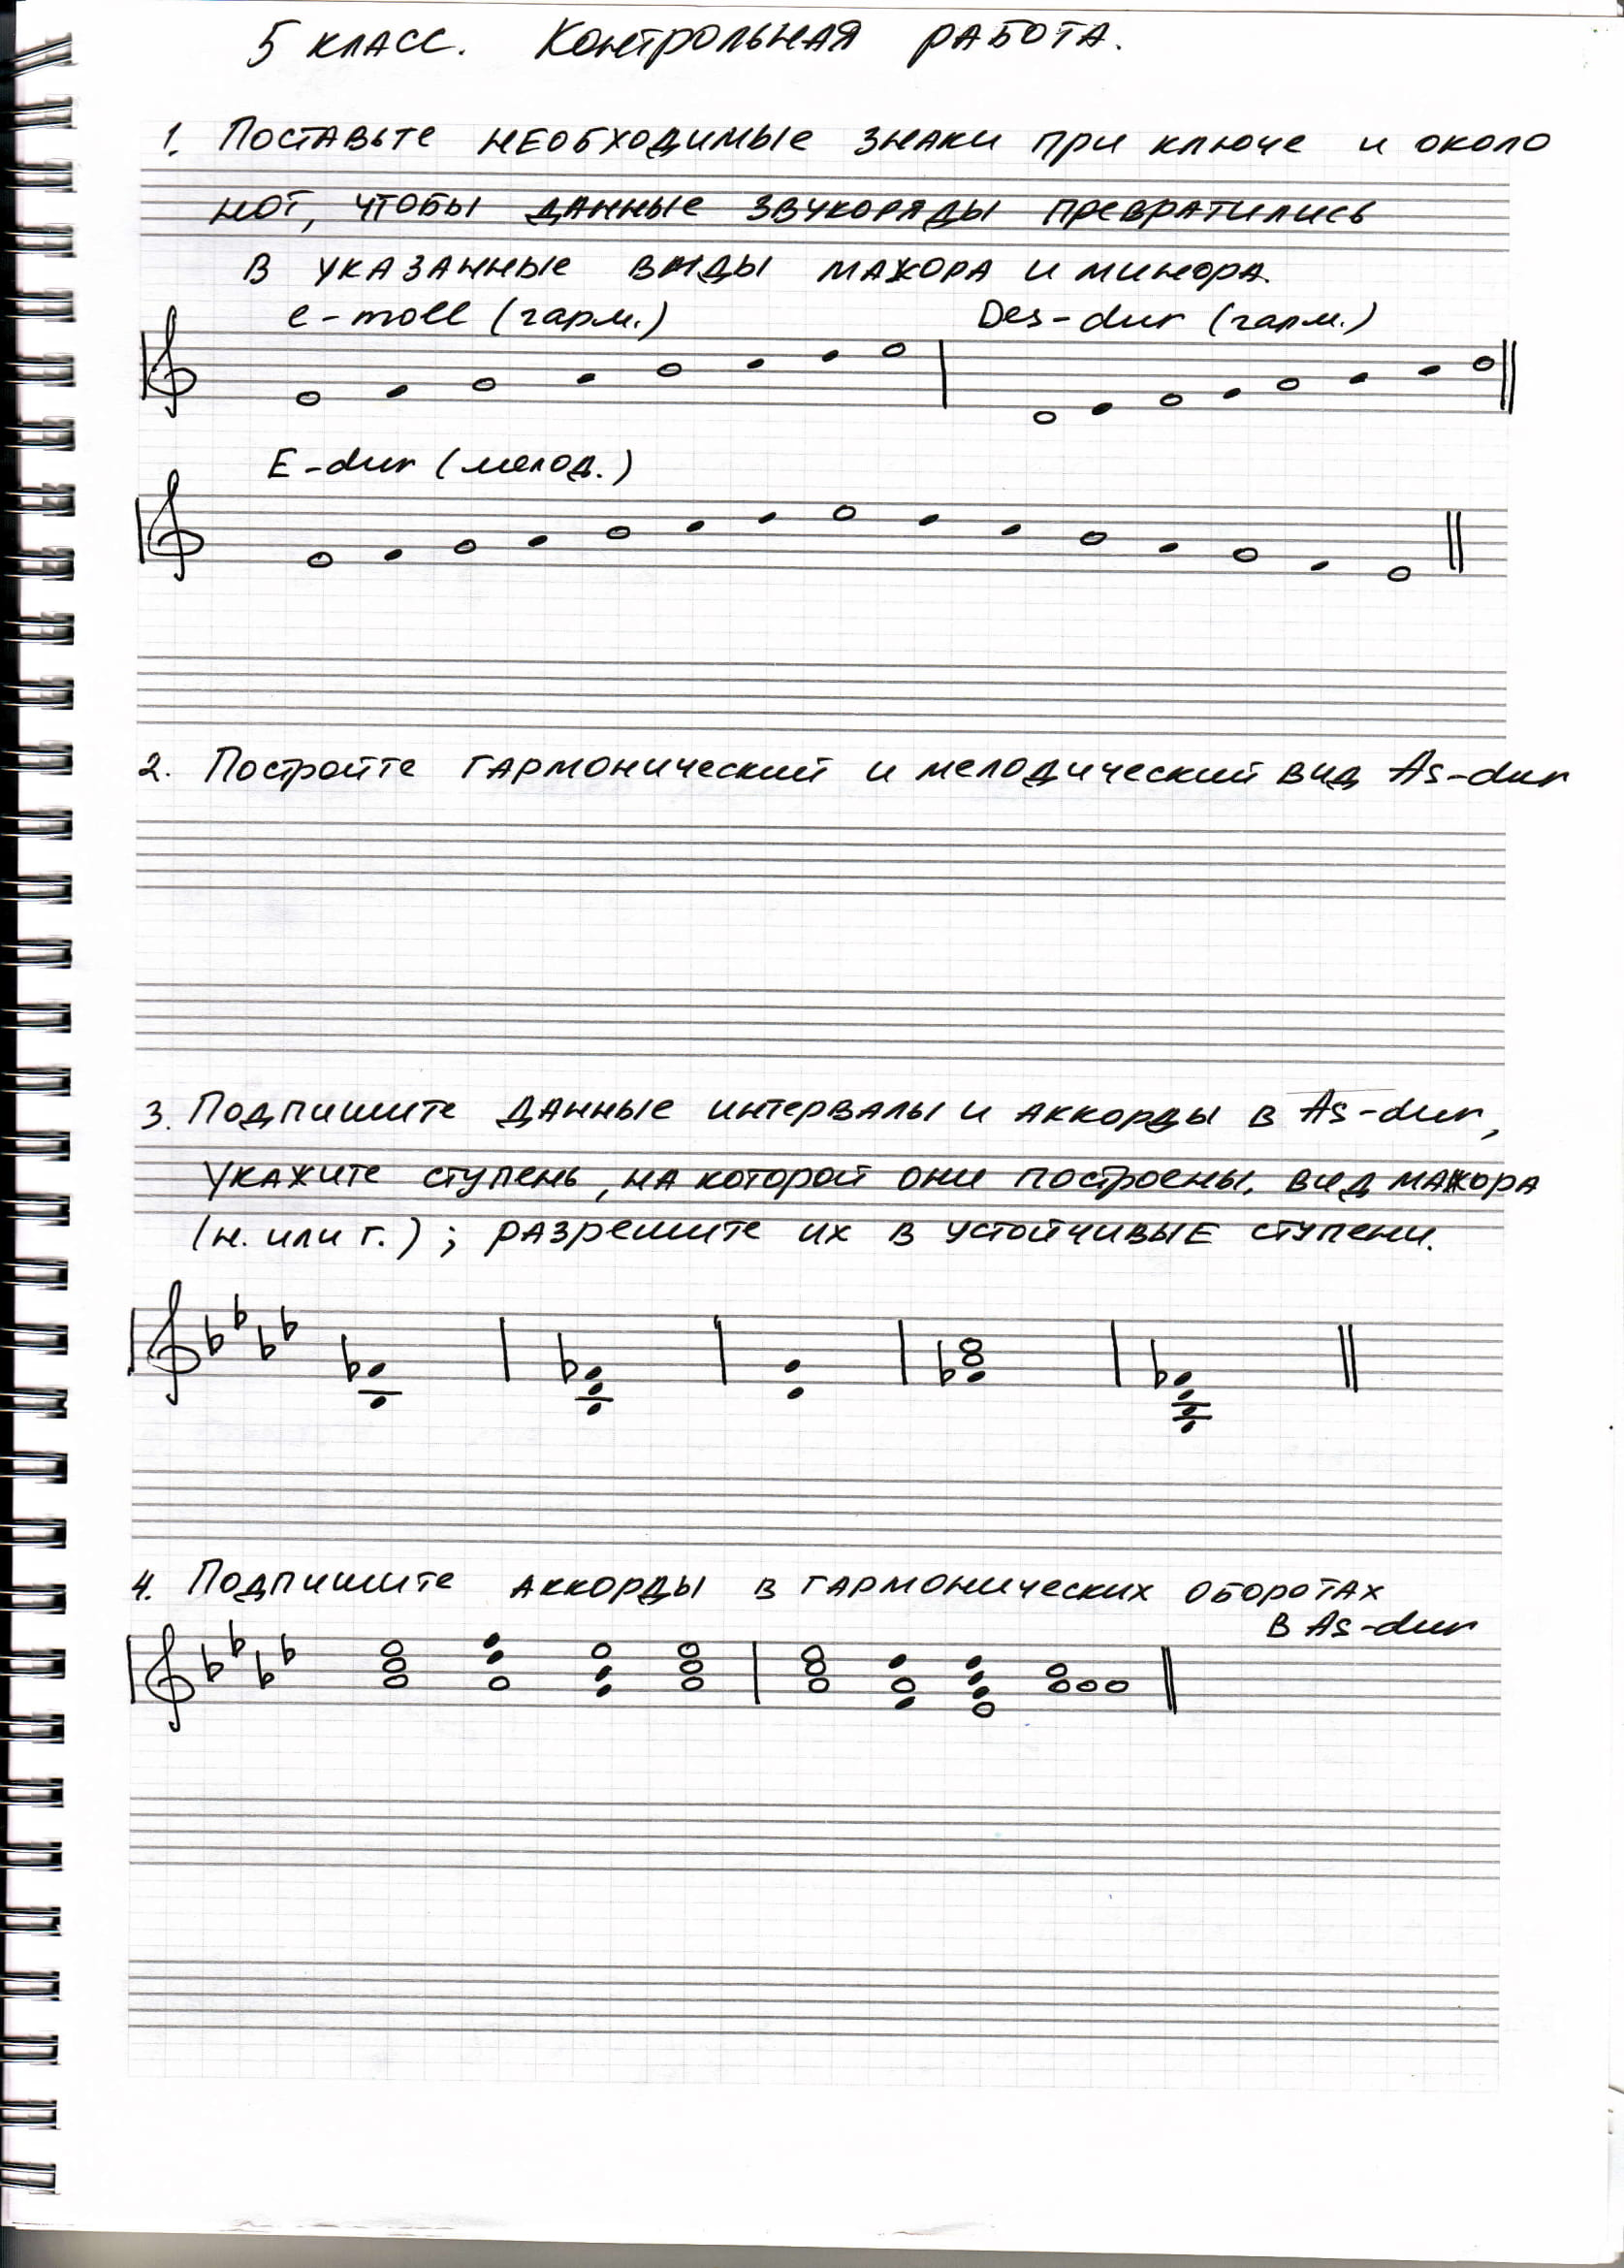 5 класс. Контрольная работа.
1. Поставьте необходимые знаки при ключе и около
нот, чтобы данные звукоряды превратились
в указанные виды мажора и минора.
e-moll (гарм.) Des-dur (гарм.)
E-dur (мелод.)
2. Постройте гармонический и мелодический вид As-dur
3. Подпишите данные интервалы и аккорды в As-dur,
укажите ступень, на которой они построены, вид мажора
(н. или г.); разрешите их в устойчивые ступени.
4. Подпишите аккорды в гармонических оборотах
в As-dur